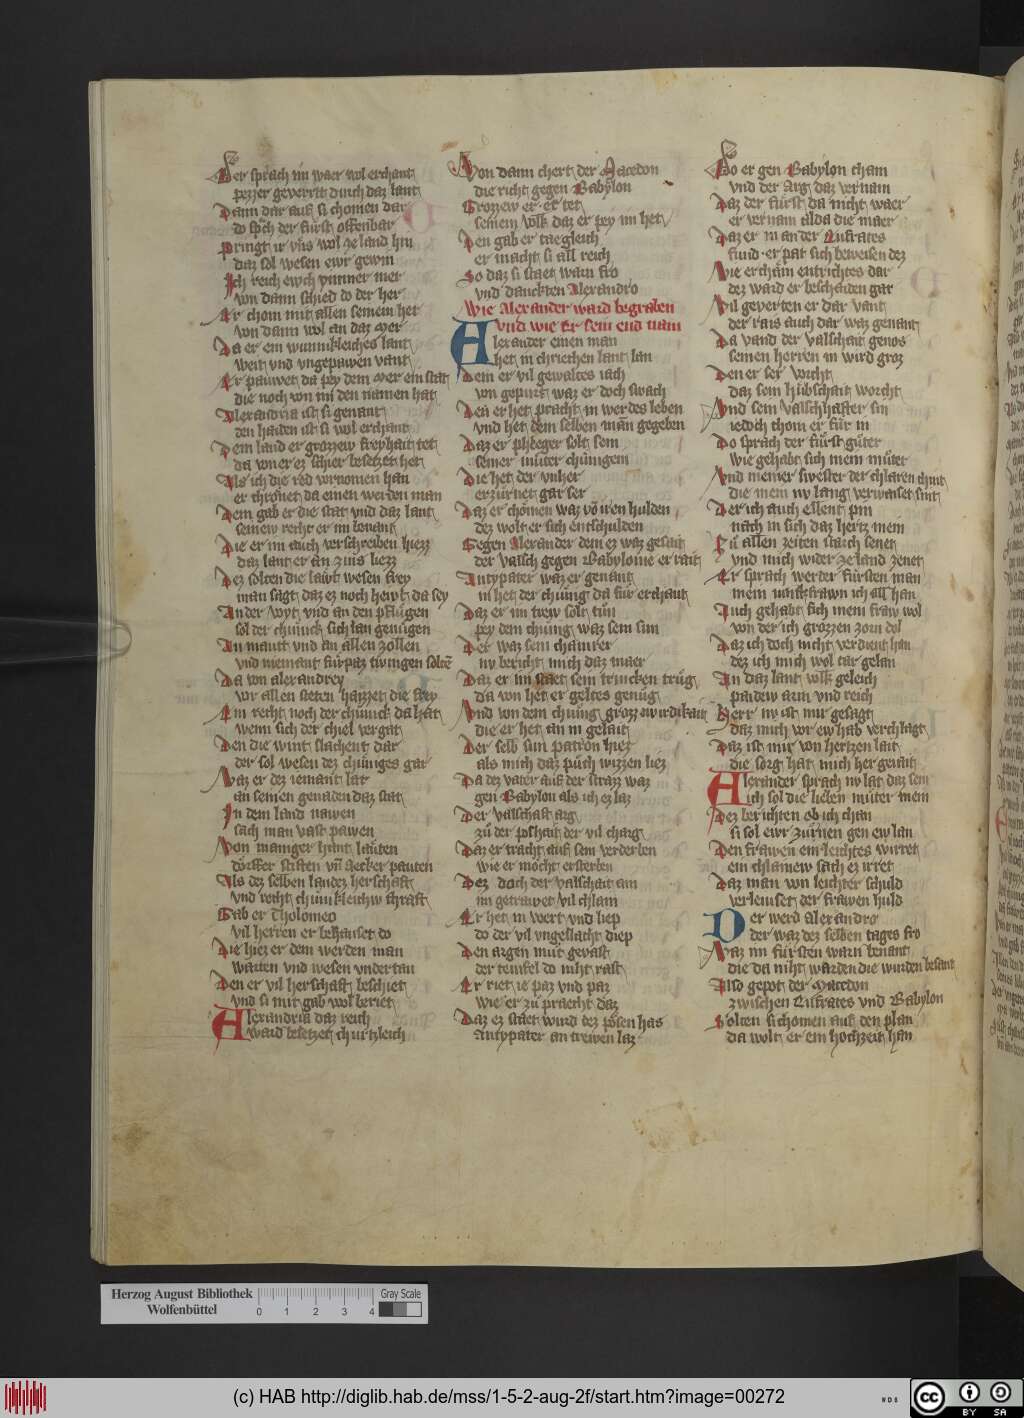 Der sprach im waer wol erchant
pezzer geverrtt durch daz lant
Dann dar auf si chomen dar
do sprach der fürst offenbar
Pringt ir uns wol ze land hin
daz sol wesen ewr gewin
Ich reich ewch ymmer mer
von dann schied do der her
Er chom mit allen seinem her
von dann wol an daz mer
Da er ein wunnikleiches lant
weit vnd vngepawen vant
Er pawet da pey dem mer ein stat
die noch von im den namen hat
Alexandria ist si genant
den haiden ist si wol erchant
Dem land er grozzew freyhait tet
da von er ez schier besetzet het
Als ich die red vernomen han
er chronet da einen werden man
Dem gab er die stat vnd daz lant
seinew recht er im benant
Die er im auch verschreiben hiezz
daz lant er an zins liezz
Dez solten die lawt wesen frey
man sagt daz ez noch hewt da sey
An der woyt vnd an den pflügen
sol der chünick sich lan genügen
An mautt vnd an allen zollen
vnd niemant fürpaz twingen sölten
Da von alexandrey
vor allen steten haizzet die frey
Ein recht noch der chünick da hat
wenn sich der chiel vergat
Den die wint slachent dar
der sol wesen dez chüniges gar
Waz er dez iemant lat
an seinen genaden daz stat
In dem land nawen
sach man vast pawen
Von maniger hant lauten
dörffer stiften vnd aecker pauten
Als dez selben landez herschaft
vnd recht chünikleichew chraft
Gab er Tholomeo
vil herren er behauset do
Die hiez er dem werden man
warten vnd wesen vndertan
Den er vil herschaft beschiet
vnd si mit gab wol beriet
Alexandria daz reich
ward besetzet churtzleich
Von dann chert der Macedon
die richt gegen Babylon
Grozzew er er tet
seinem volk daz er pey im het
Den gab er taegleich
er macht si all reich
So daz si staet warn fro
vnd danckten Alexandro
Wie Alexander ward begraben
vnd wie Er sein end nam
Alexander einen man
het in chriechen lant lan
Dem er vil gewaltes iach
von gepurt waz er doch swach
Den er het pracht in werdes leben
vnd het dem selben man gegeben
Daz er phleger solt sein
seiner müter chünigein
Die het der vnher
erzürnet gar ser
Daz er chömen waz von iren hulden
dez wolt er sich entschulden
Gegen Alexander dem ez waz gesait
der valsch gegen Babylonie er rait
Antypater waz er genant
in het der chünig da für erchant
Daz er im trew solt tün
pey dem chünig waz sein sun
Der waz sein chamrer
nv bericht mich daz maer
Daz er im staet sein trincken trüg
da von het er geltes genüg
Vnd von dem chünig grozzew wirdikait
die er het an in gelait
Der selb sun patron hiez
als mich daz püch wizzen liez
Da dez vater auf der straz waz
gen Babylon als ich ez laz
Der valschaft arg
zü der poshait der vil charg
Daz er tracht auf sein verderben
wie er möcht ersterben
Dez doch der valschait an
im getrawet vil chlain
Er het in wert vnd liep
do der vil vngeslacht diep
Den argen müt gevast
der teufel do niht rast
Er riet ie paz vnd paz
wie er zü praecht daz
Daz ez staet wurd dez pösen has
Antypater an trewen laz
Do er gen Babylon cham
vnd der Arg daz vernam
Daz der fürst da nicht waer
er vernam alda die maer
Daz er in an der Eufrates
fund er pat sich beweisen dez
Wie er cham entrichtes dar
dez ward er bescheiden gar
Vil geverten er dar vant
der rais auch dar waz genant
Da vand der valschait genos
seinen herren in wird groz
Den er ser vorcht
daz sein hübschait worcht
Vnd sein valschhafter sin
iedoch chom er für in
Do sprach der fürst güter
wie gehabt sich mein müter
Vnd meiner swester der chlaren chint
die mein nv lang verwaiset sint
Der ich auch ellent pin
nach in sich daz hertz mein
Zu allen zeiten starch senet
vnd mich wider ze land zenet
Er sprach werder fürsten man
mein iunkfrawn ich all han
Auch gehabt sich mein fraw wol
von der ich grözzen zorn dol
Daz ich doch nicht verdient han
dez ich mich wol tar gelan
An daz lant volk geleich
paidew arm vnd reich
Herr nv ist mir gesagt
daz mich vor ew hab verchlagt
Daz ist mir von hertzen lait
die sorg hat mich her gerait
Alexander sprach nv lat daz sein
ich sol die lieben müter mein
Dez berichten ob ich chan
si sol ewr zürnen gen ew lan
Den frawen ein leichtes wirret
ein chlainew sach ez irret
Daz man von leichter schuld
verleuset der frawen huld
Der werd Alexandro
der waz dez selben tages fro
Waz im fürsten warn benant
die da niht warden die wurden besant
Also gepot der Macedon
zwischen Eufrates vnd Babylon
Solten si chomen auf den plan
da wolt er ein hochzeit han
Herzog August Bibliothek
Wolfenbüttel
0 1 2 3 4
Gray Scale
(c) HAB http://diglib.hab.de/mss/1-5-2-aug-2f/start.htm?image=00272
WDB
cc BY SA